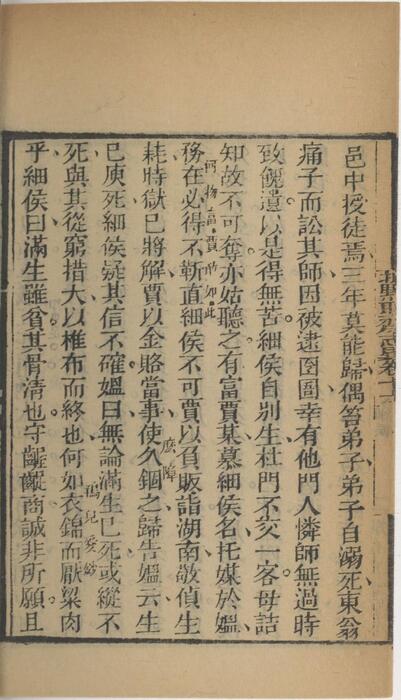 邑中授徒焉三年莫能歸偶笞弟子弟子自溺死東翁
痛子而訟其師因被逮囹圄幸有他門人憐師無過時
致餽遺以是得無苦細侯自別生杜門不交一客母詰
知故不可奪亦姑聽之有富賈某慕細侯名托媒於媼
務在必得不靳直細侯不可賈以負販詣湖南敬偵生
耗時獄已將解賈以金賂當事使久錮之歸告媼云生
已庾死細侯疑其信不確媼曰無論滿生已死或縱不
死與其從窮措大以椎布而終也何如衣錦而厭粱肉
鴇兒愛鈔
乎細侯曰滿生雖貧其骨清也守齷齪商誠非所願且